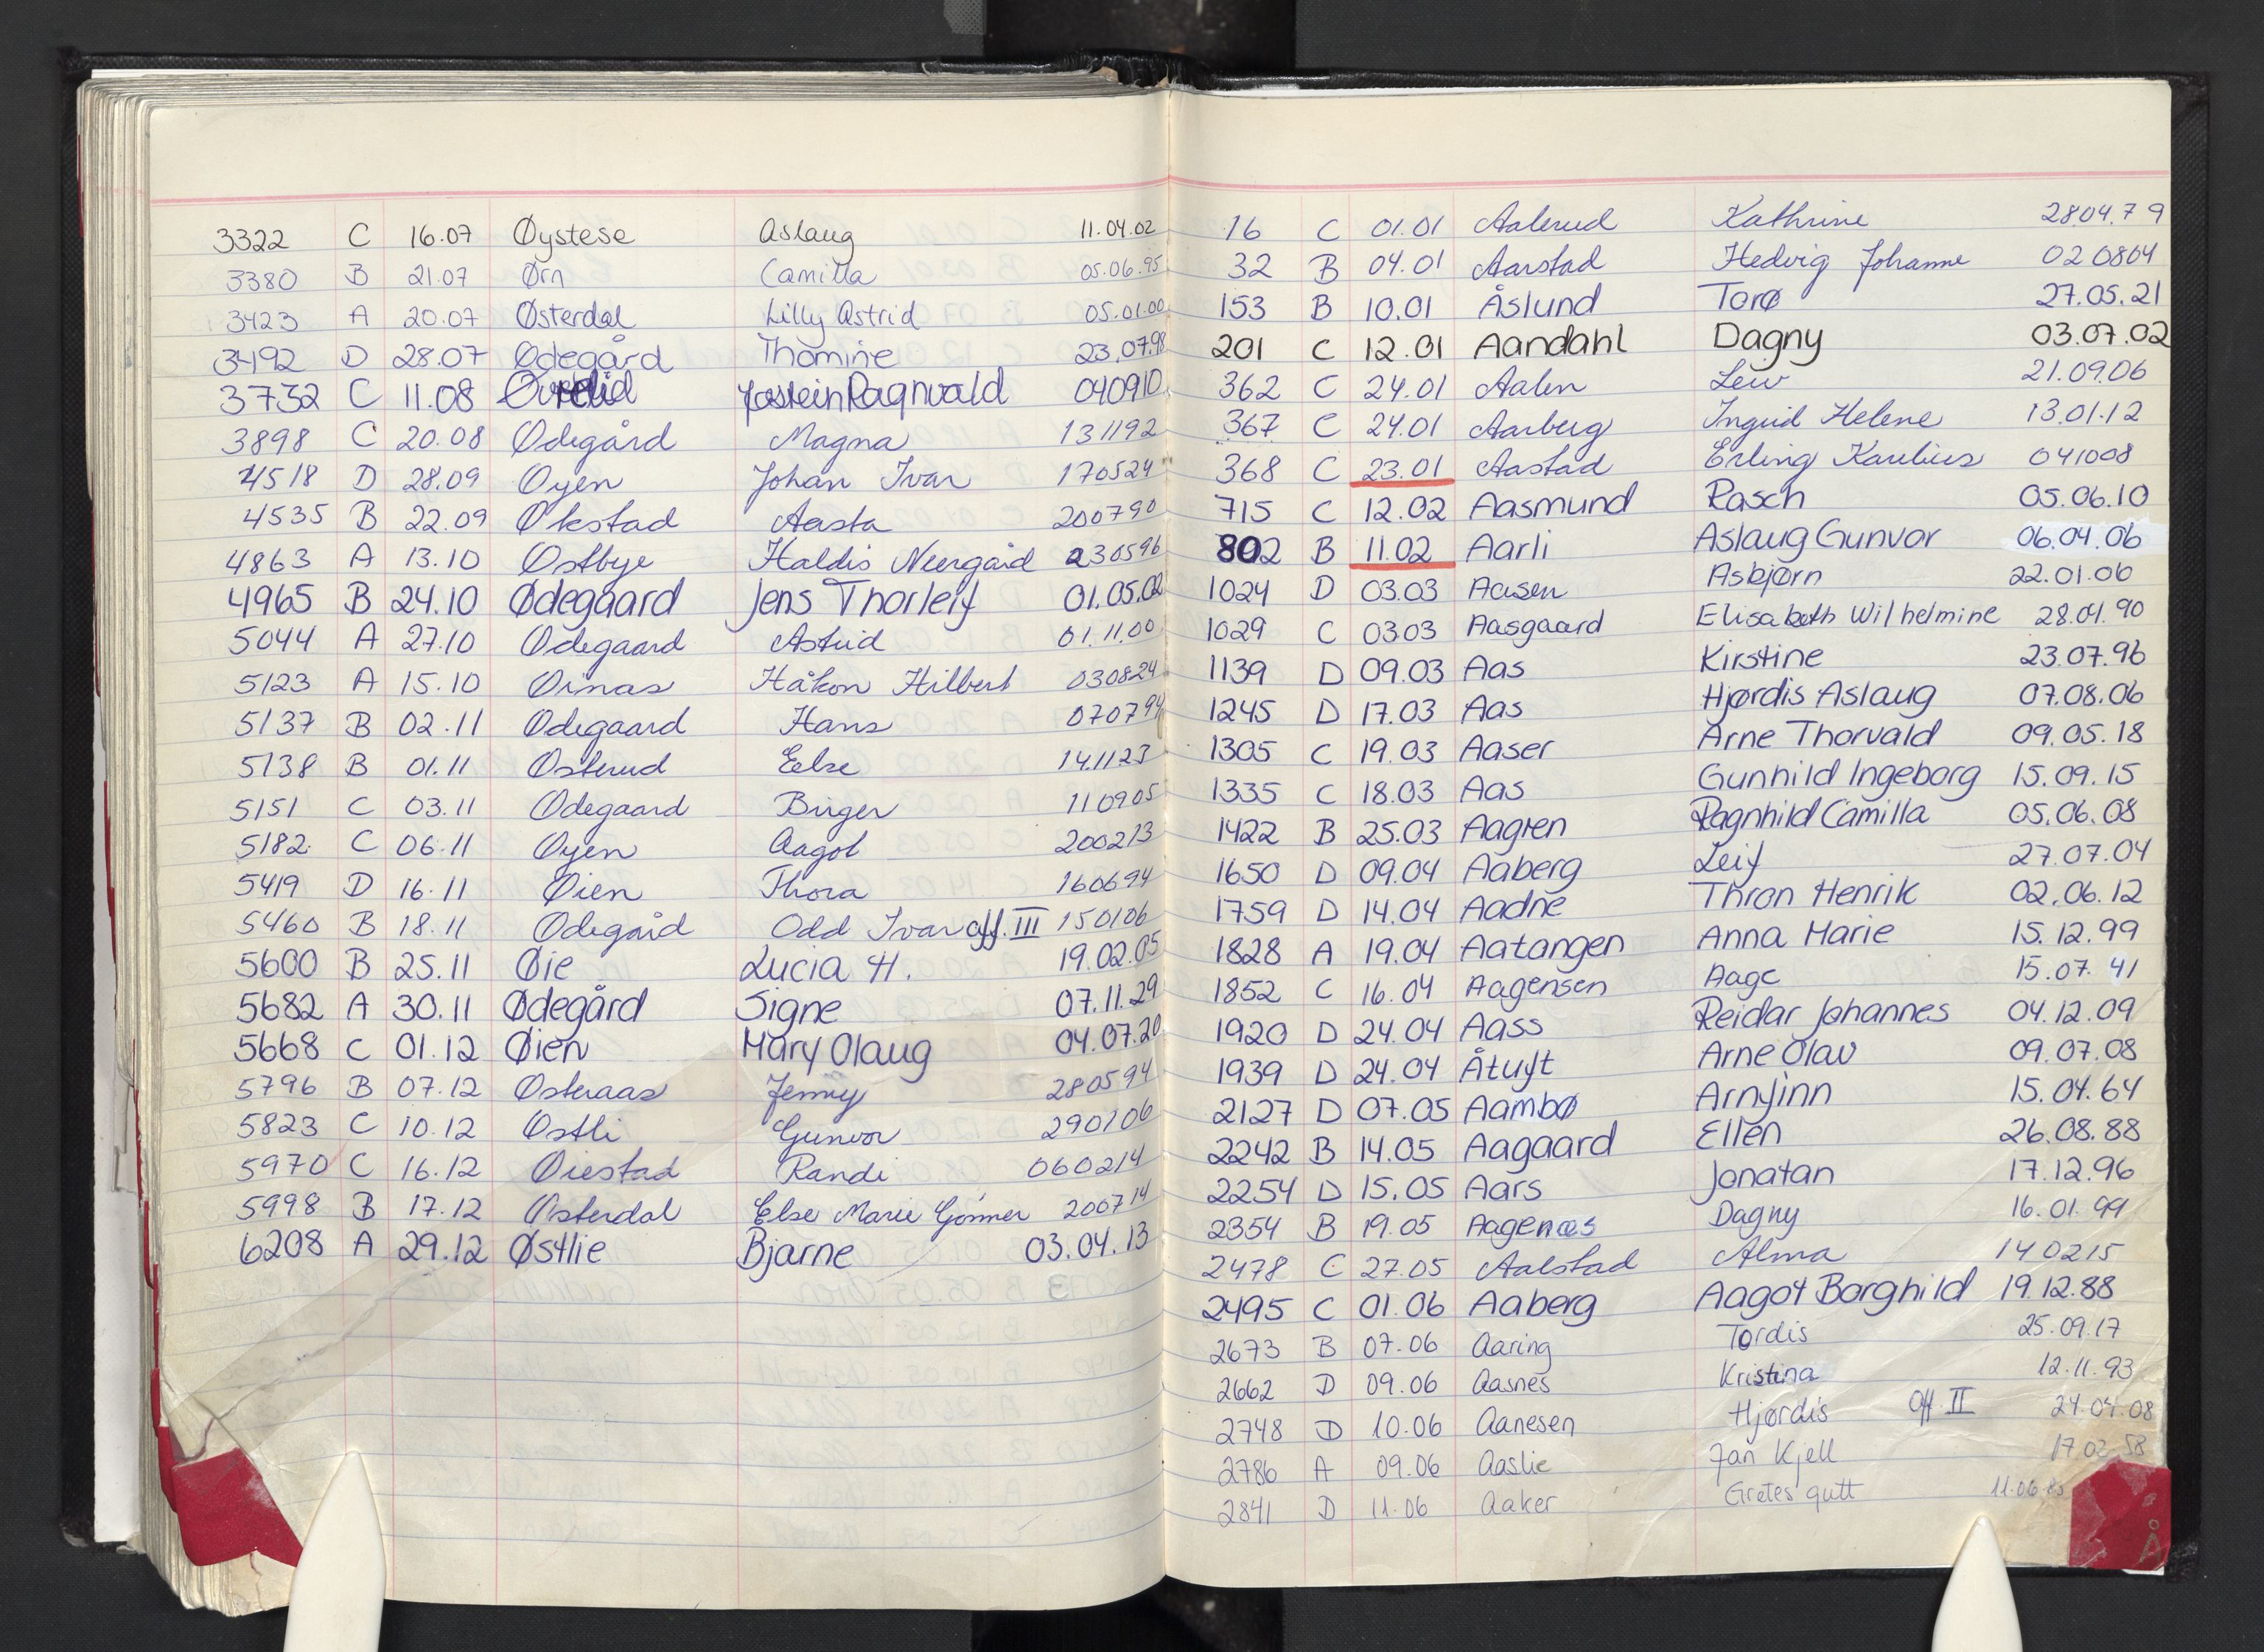 3322 C 16.07 Øystese Aslaug 11.04.02
3380 B 21.07 Ørn Camilla 05.06.95
3423 A 20.07 Østerdal Lilly Astrid 05.01.00
3492 D 28.07 Ødegård Thomine 23.07.98
3732 C 11.08 Øvrelid Jostein Ragnvald 040910
3898 C 20.08 Ødegård Magna 131192
4518 D 28.09 Øyen Johan Ivar 170524
4535 B 22.09 Økstad Aasta 200790
4863 A 13.10 Østbye Haldis Neergård 230596
4965 B 24.10 Ødegaard Jens Thorleif 01.05.02
5044 A 27.10 Ødegaard Astrid 01.11.00
5123 A 15.10 Ørnas Håkon Hilbert 030824
5137 B 02.11 Ødegaard Hans 070794
5138 B 01.11 Østerud Else 141123
5151 C 03.11 Ødegaard Birger 110905
5182 C 06.11 Øyen Aagot 200213
5419 D 16.11 Øien Thora 160694
5460 B 18.11 Ødegård Odd Ivar aff. III 150106
5600 B 25.11 Øie Lucia H. 19.02.05
5682 A 30.11 Ødegård Signe 07.11.29
5668 C 01.12 Øien Mary Olaug 04.07.20
5796 B 07.12 Østeraas Jenny 280594
5823 C 10.12 Østli Gunvor 290106
5970 C 16.12 Øiestad Randi 060214
5998 B 17.12 Østerdal Else Marie Gørrner 200714
6208 A 29.12 Østlie Bjarne 03.04.13
16 C 01.01 Aalerud Kathrine 28.04.79
32 B 04.01 Aarstad Hedvig Johanne 020804
153 B 10.01 Åslund Torø 27.05.21
201 C 12.01 Aandahl Dagny 03.07.02
362 C 24.01 Aalen Leiv 21.09.06
367 C 24.01 Aarberg Ingrid Helene 13.01.12
368 C 23.01 Aastad Erling Karelius 041008
715 C 12.02 Aasmund Rasch 05.06.10
802 B 11.02 Aarli Aslaug Gunvor 06.04.06
1024 D 03.03 Aasen Asbjørn 22.01.06
1029 C 03.03 Aasgaard Elisabeth Wilhelmine 28.01.90
1139 D 09.03 Aas Kirstine 23.07.96
1245 D 17.03 Aas Hjørdis Aslaug 07.08.06
1305 C 19.03 Aaser Arne Thorvald 09.05.18
1335 C 18.03 Aas Gunhild Ingeborg 15.09.15
1422 B 25.03 Aagren Ragnhild Camilla 05.06.08
1650 D 09.04 Aaberg Leif 27.07.04
1759 D 14.04 Aadne Thron Henrik 02.06.12
1828 A 19.04 Aatangen Anna Marie 15.12.99
1852 C 16.04 Aagensen Aage 15.07.41
1920 D 24.04 Aass Reidar Johannes 04.12.09
1939 D 24.04 Åtuft Arne Olav 09.07.08
2127 D 07.05 Aambø Arnfinn 15.04.64
2242 B 14.05 Aagaard Ellen 26.08.88
2254 D 15.05 Aars Jonatan 17.12.96
2354 B 19.05 Aagenæs Dagny 16.01.99
2478 C 27.05 Aalstad Alma 140215
2495 C 01.06 Aaberg Aagot Borghild 19.12.88
2673 B 07.06 Aaring Tordis 25.09.17
2662 D 09.06 Aasnes Kristina 12.11.93
2748 D 10.06 Aanesen Hjørdis aff. II 24.04.08
2786 A 09.06 Aaslie Jan Kjell 17.02.58
2841 D 11.06 Aaker Gretes gutt 11.06.85
Å